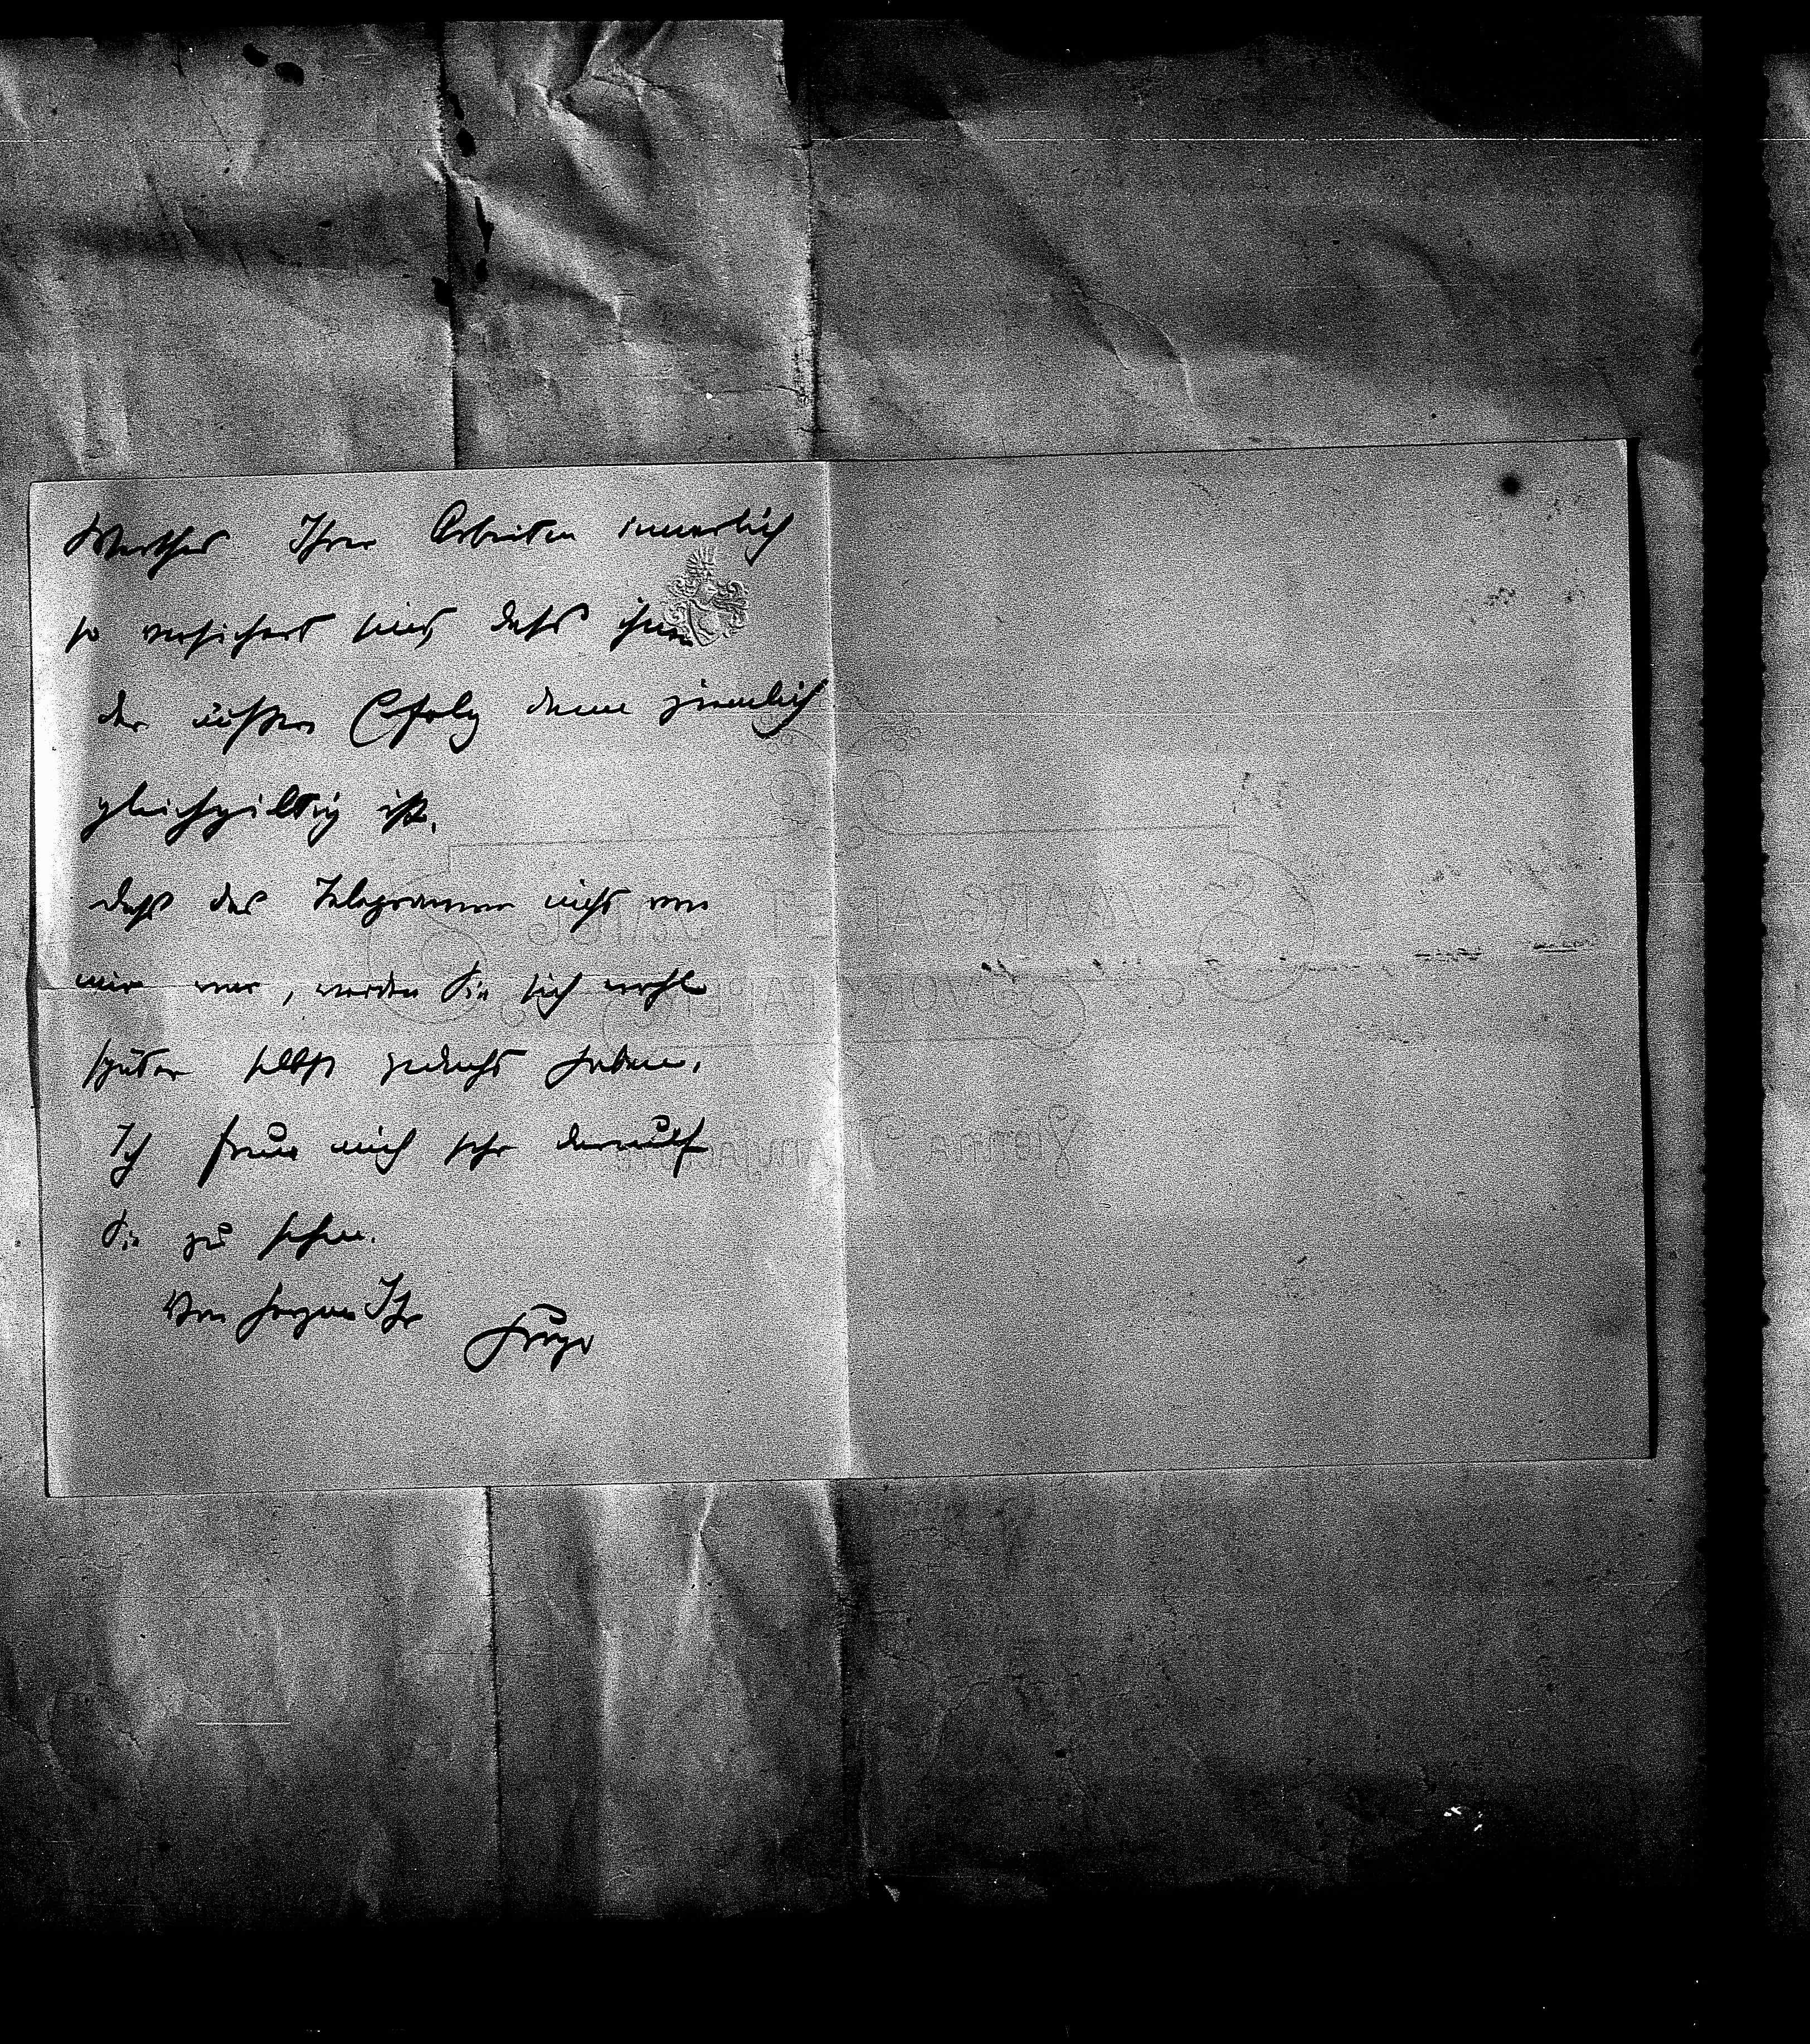 Werthes Ihrer Arbeiten innerlich
so versichert sein, dass ihnen
der äussere Erfolg dann ziemlich
gleichgiltig ist.
Dass das Telegramm nicht von
mir war, werden Sie sich wohl
später selbst gedacht haben.
Ich freue mich sehr darauf
Sie zu sehen.
Von Herzen Ihr Hugo